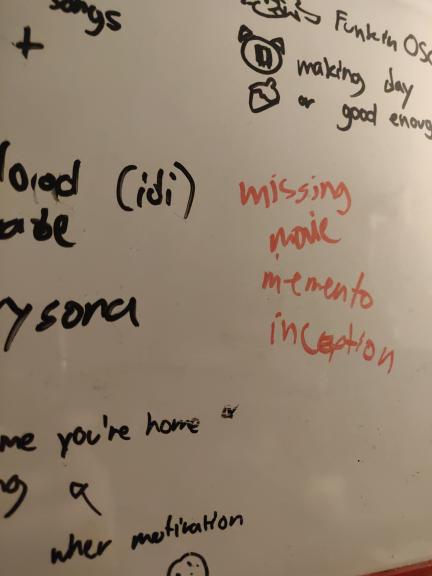 songs
+
Funkin OSC
making day
or good enoug
(idi)
ysona
missing
movie
memento
inception
me you're home or
ng
when motivation